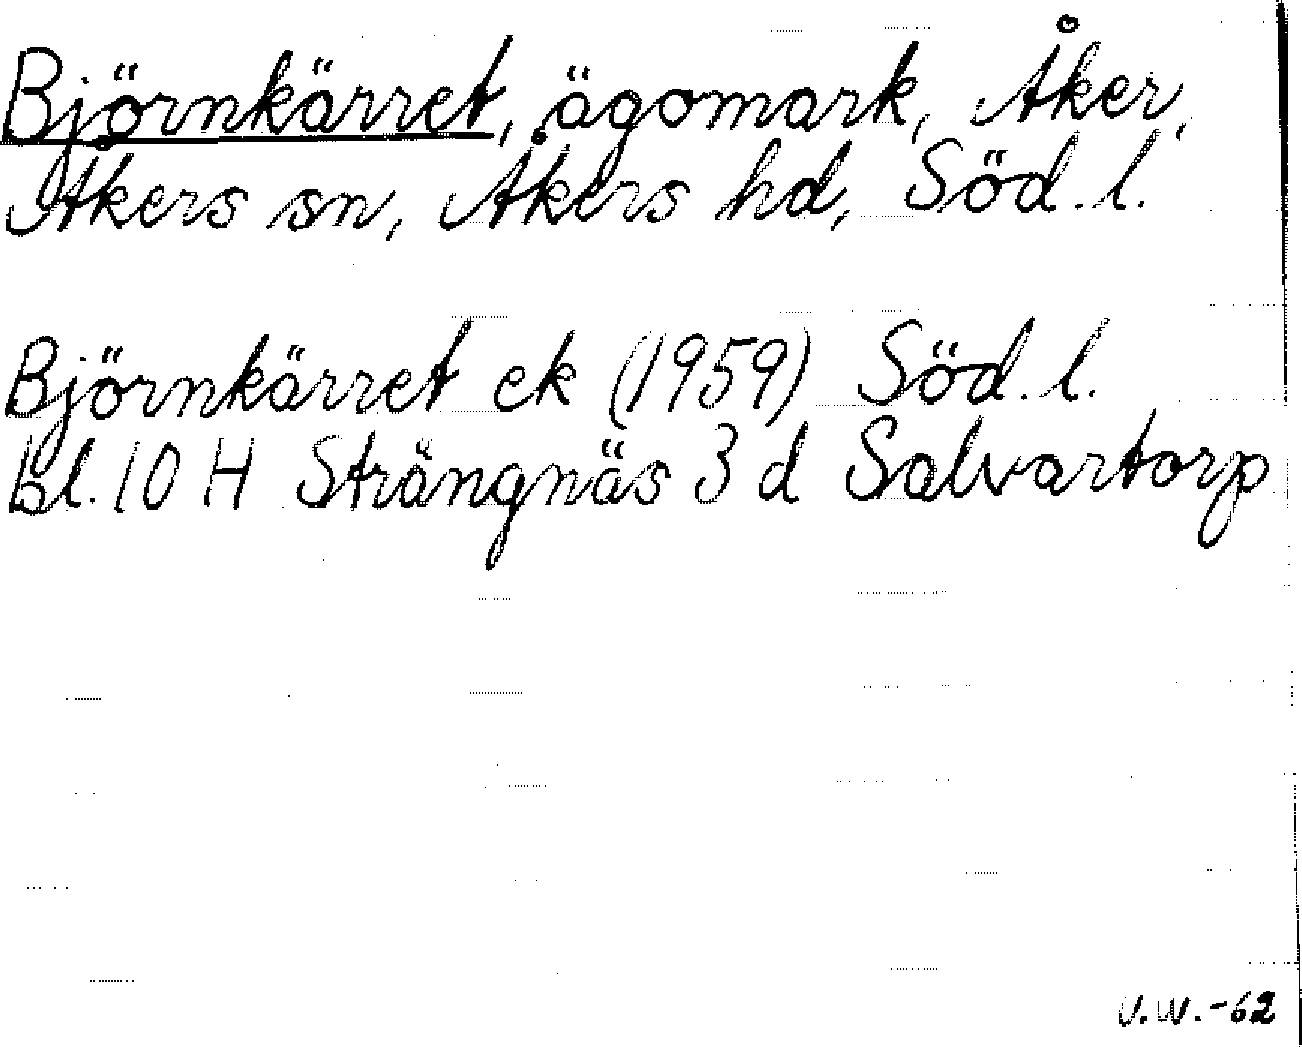 Björnkärret, ägomark, Åker,
Åkers sn, Åkers hd, Söd. l.
Björnkärret ek (1959) Söd. l.
bl. 10 H Strängnäs 3 d Salvartorp
V.W.-62